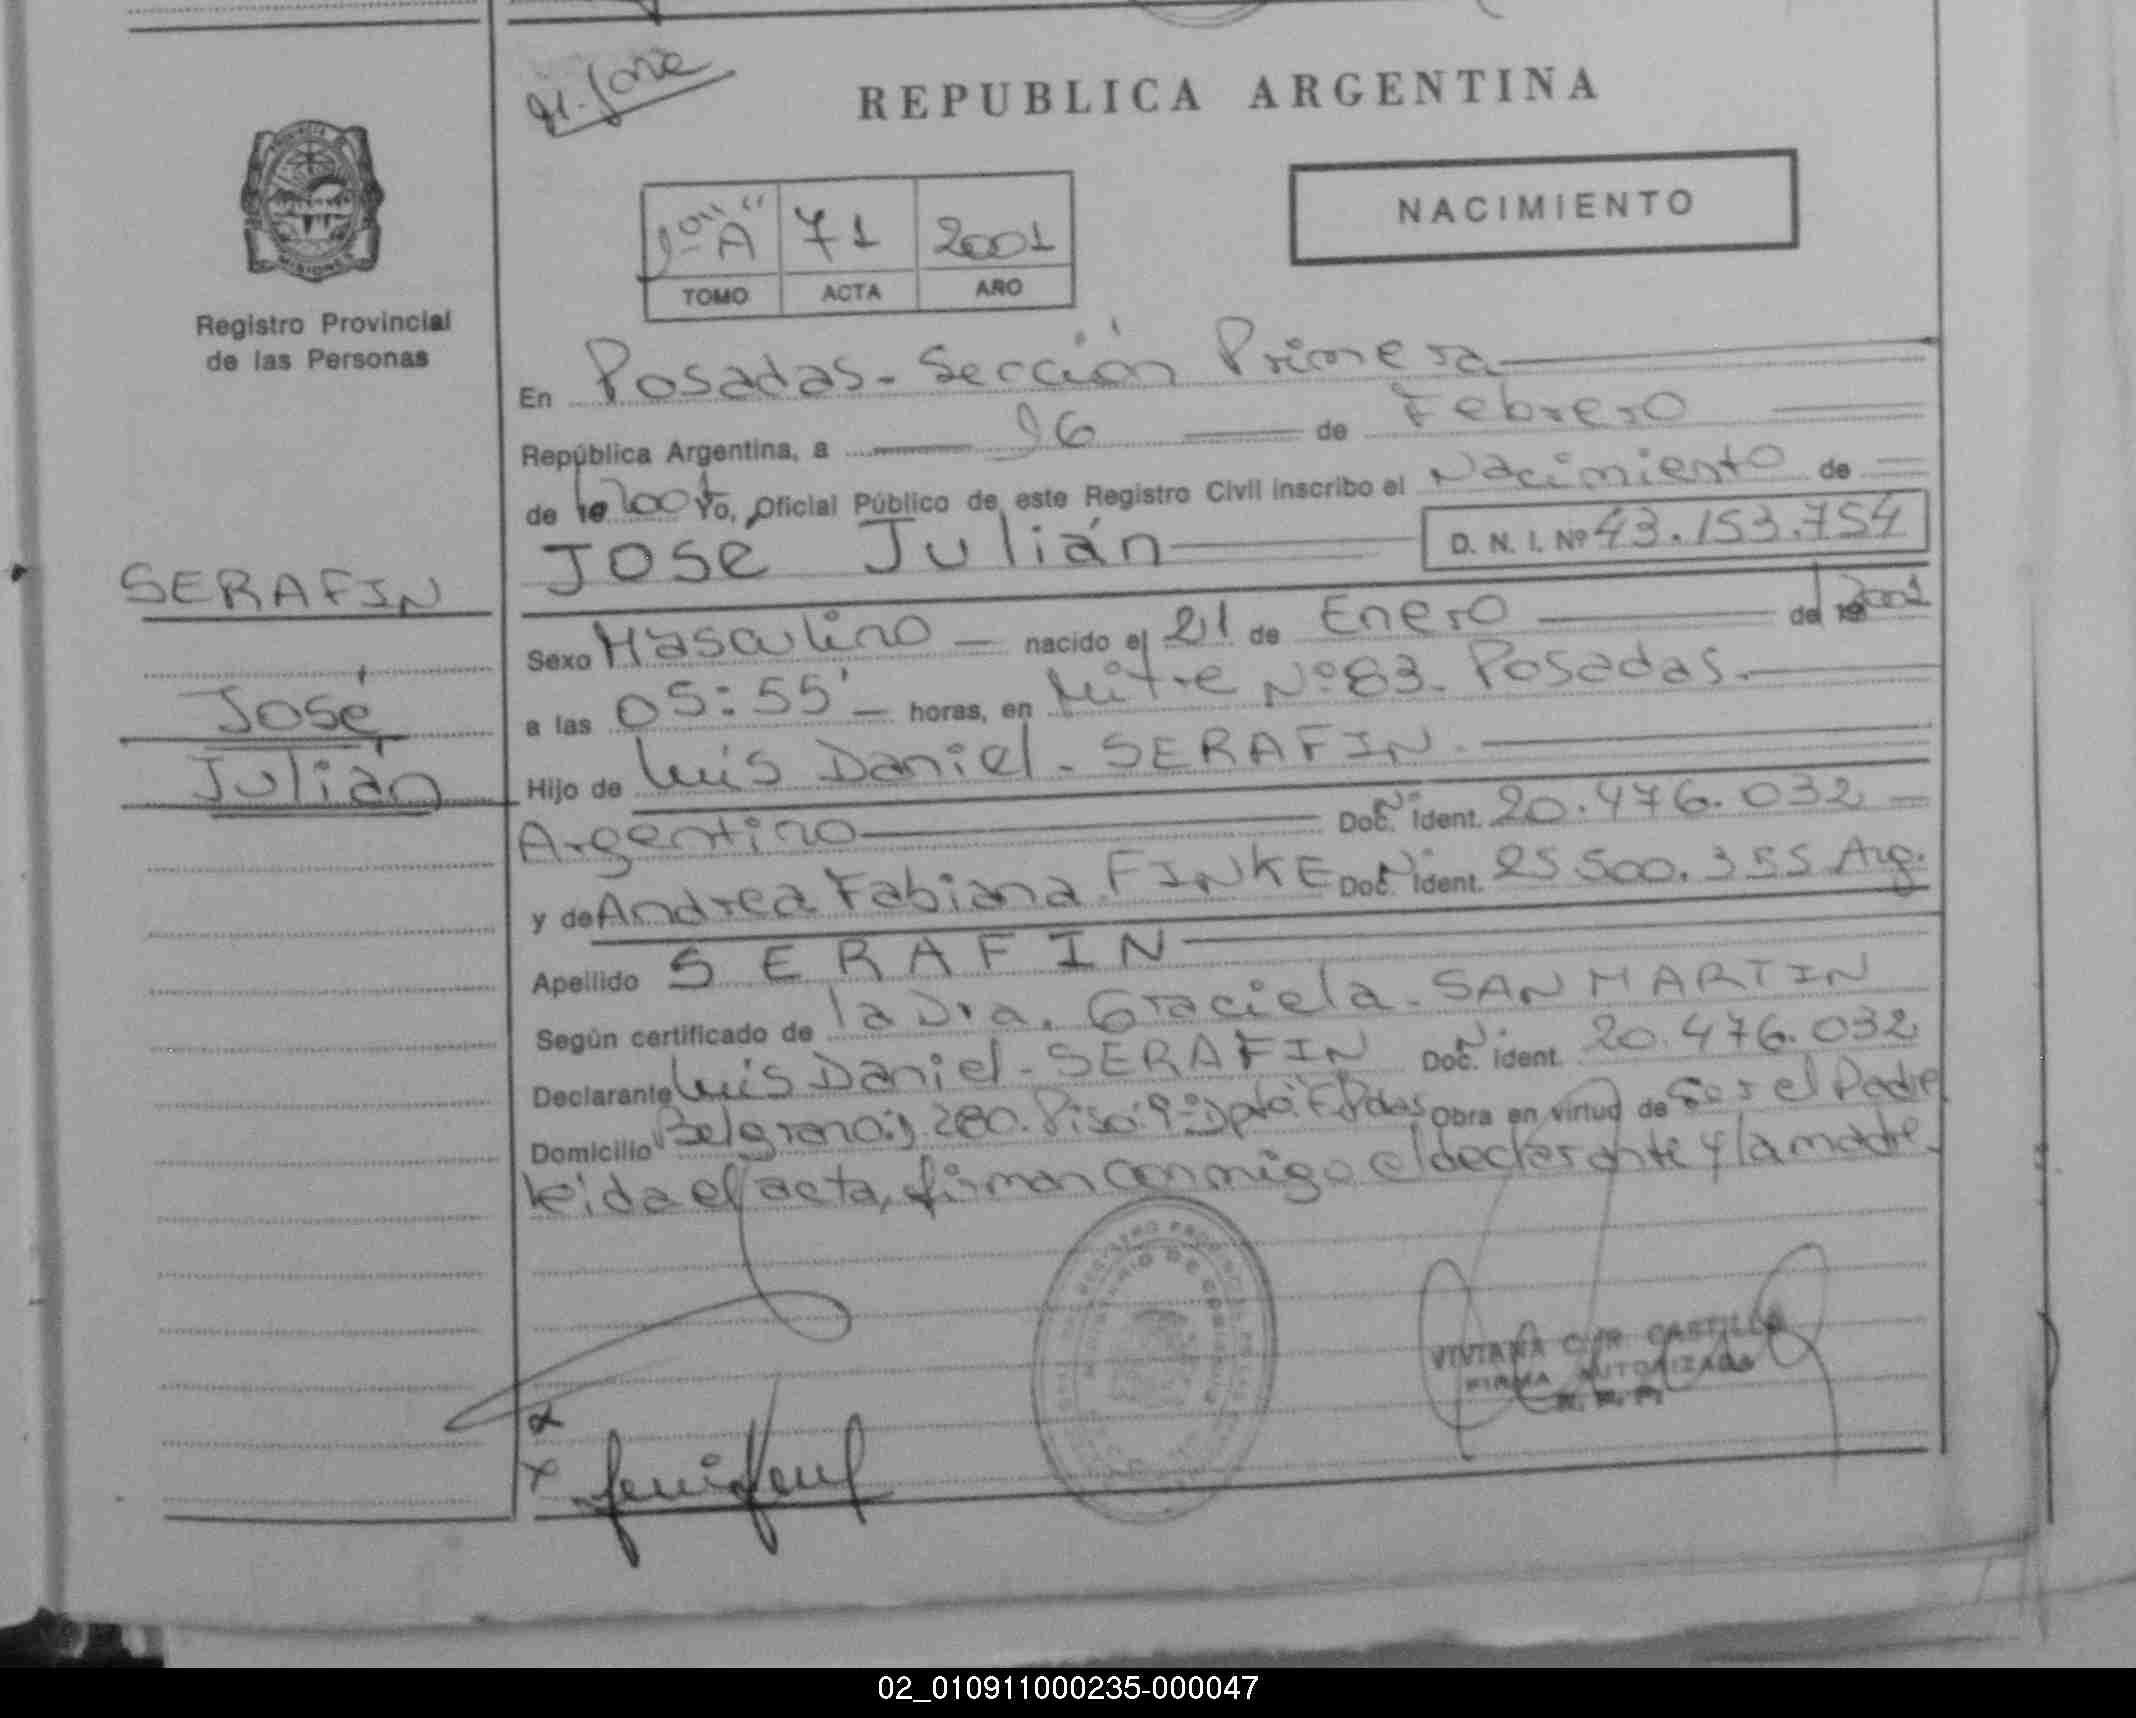 REPUBLICA ARGENTINA
NACIMIENTO
1º "A" 71 2001
TOMO ACTA AÑO
MISIONES
Registro Provincial
de las Personas
En Posadas - Sección Primera
República Argentina, a 16 de Febrero
de 19 2001 Yo, Oficial Público de este Registro Civil inscribo el Nacimiento de
JOSE Julián D. N. I. Nº 43.153.754
SERAFIN
José
Julián
Sexo Masculino nacido el 21 de Enero de 19 2001
a las 05:55' horas, en Mitre Nº 83. Posadas.
Hijo de Luis Daniel - SERAFIN.
Argentino Doc. Nº ident. 20.476.032
y de Andrea Fabiana FINKE Doc. Nº ident. 25 500.355 Arg.
Apellido SERAFIN
Según certificado de la Dra. Graciela - SAN MARTIN
Declarante Luis Daniel - SERAFIN Doc. Nº ident. 20.476.032
Domicilio Belgrano: 1.280. Piso: 9º Dpto "F" Pdas Obra en virtud de Ser el Padre
leida el acta, firman conmigo el declarante y la madre.
VIVIANA CASTILLO
FIRMA AUTORIZADA
R. P. P.
02_010911000235-000047